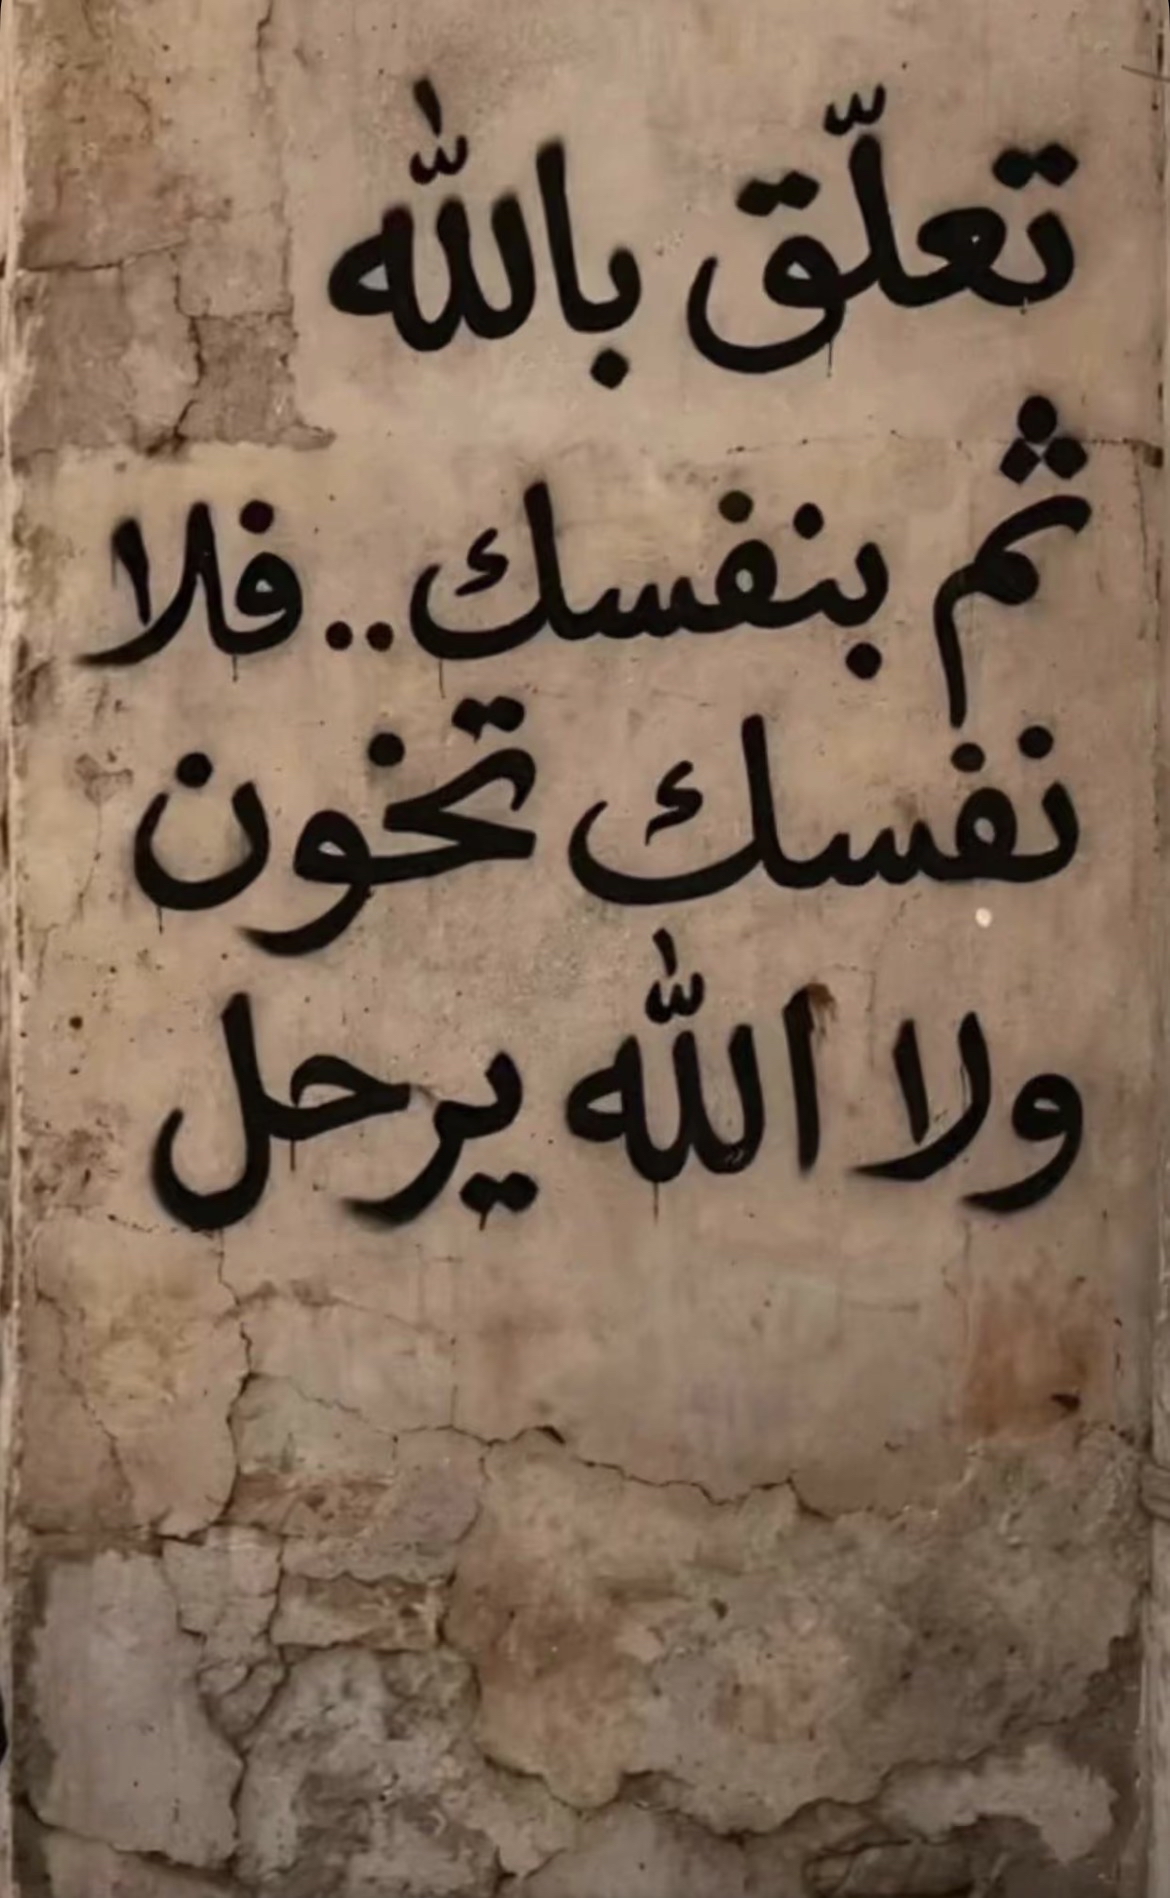 تعلّق باللّٰه
ثم بنفسك..فلا
نفسك تخون
ولا اللّٰه يرحل